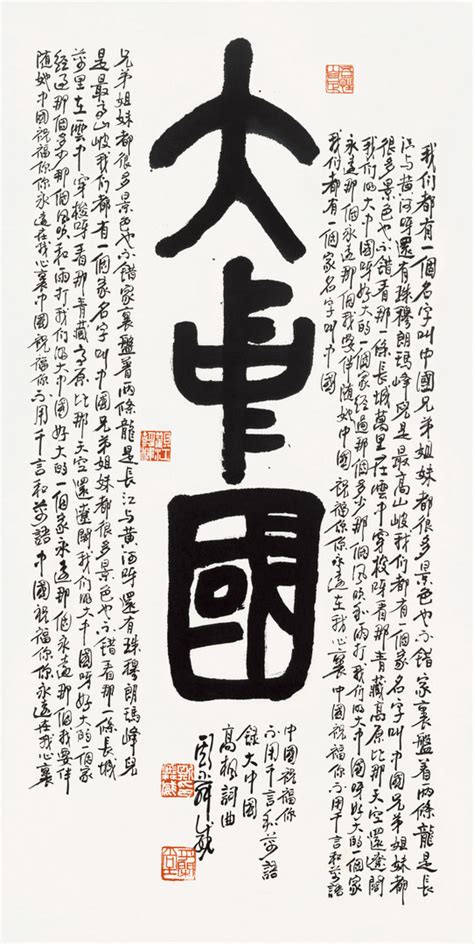 大中國
我们都有一個名字叫中國兄弟姐妹都很多景色也不錯家裏盤着兩條龍是長
江与黄河呀還有珠穆朗瑪峰兒是最高山坡我们都有一個家名字叫中國兄弟姐妹都
很多景色也不錯看那一條長城萬里在雲中穿梭呀看那青藏高原比那天空還遼闊
我们的大中國呀好大的一個家經過那個多少那個風吹和雨打我们的大中國呀好大的一個家
永遠那個永遠那個我要伴隨她中國祝福你你永遠在我心裏中國祝福你不用千言和萬語
我们都有一個家名字叫中國
兄弟姐妹都很多景色也不錯家裏盤着兩條龍是長江与黄河呀還有珠穆朗瑪峰兒
是最高山坡我们都有一個家名字叫中國兄弟姐妹都很多景色也不錯看那一條長城
萬里在雲中穿梭呀看那青藏高原比那天空還遼闊我们的大中國呀好大的一個家
經過那個多少那個風吹和雨打我们的大中國好大的一個家永遠那個永遠那個我要伴
隨她中國祝福你你永遠在我心裏中國祝福你不用千言和萬語中國祝福你你永遠在我心裏
中國祝福你
不用千言和萬語
錄大中國
高楓詞曲